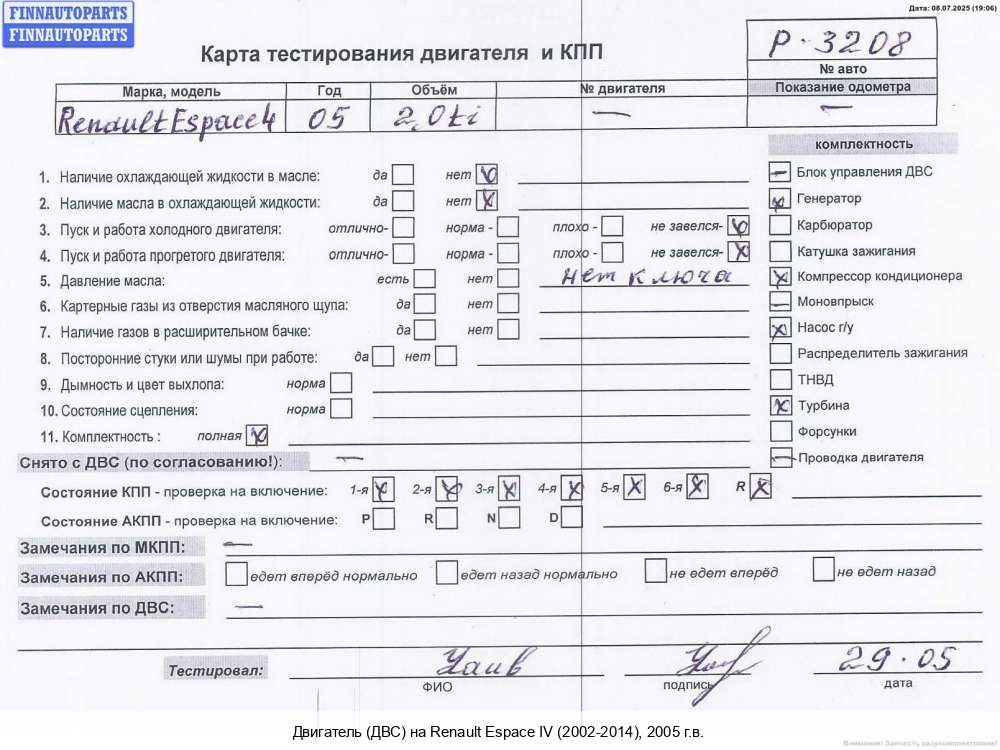 FINNAUTOPARTS
FINNAUTOPARTS
Дата: 08.07.2025 (19:06)
Карта тестирования двигателя и КПП
P-3208
№ авто
Марка, модель Год Объём № двигателя Показание одометра
Renault Espace 4 05 2,0ti — —
комплектность
1. Наличие охлаждающей жидкости в масле: да нет
2. Наличие масла в охлаждающей жидкости: да нет
3. Пуск и работа холодного двигателя: отлично- норма - плохо - не завелся-
4. Пуск и работа прогретого двигателя: отлично- норма - плохо - не завелся-
5. Давление масла: есть нет нет ключа
6. Картерные газы из отверстия масляного щупа: да нет
7. Наличие газов в расширительном бачке: да нет
8. Посторонние стуки или шумы при работе: да нет
9. Дымность и цвет выхлопа: норма
10. Состояние сцепления: норма
11. Комплектность : полная
Блок управления ДВС
Генератор
Карбюратор
Катушка зажигания
Компрессор кондиционера
Моновпрыск
Насос г/у
Распределитель зажигания
ТНВД
Турбина
Форсунки
Проводка двигателя
Снято с ДВС (по согласованию!): —
Состояние КПП - проверка на включение: 1-я 2-я 3-я 4-я 5-я 6-я R
Состояние АКПП - проверка на включение: P R N D
Замечания по МКПП: —
Замечания по АКПП: едет вперёд нормально едет назад нормально не едет вперёд не едет назад
Замечания по ДВС: —
Тестировал: 29.05
ФИО подпись дата
Двигатель (ДВС) на Renault Espace IV (2002-2014), 2005 г.в.
Внимание! Запчасть разукомплектована!